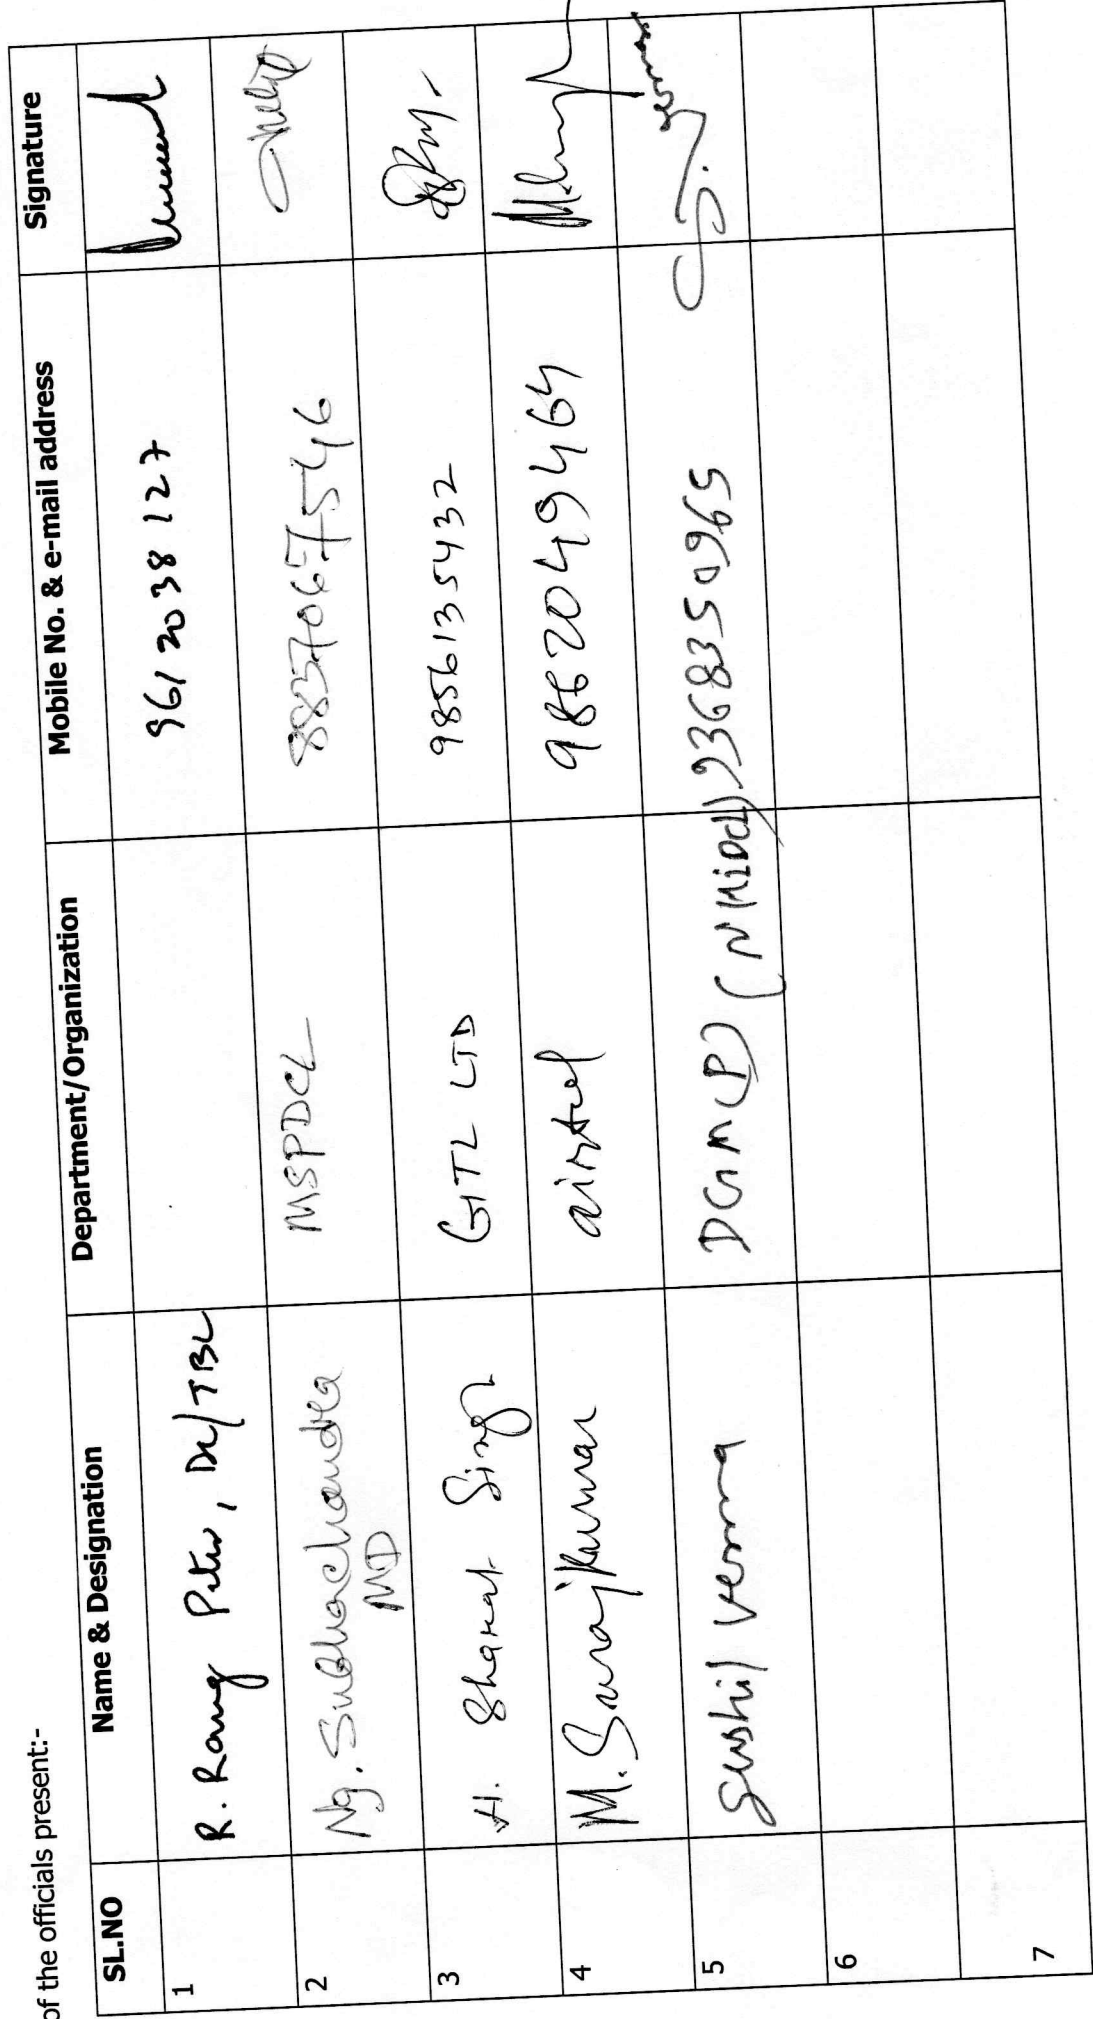 of the officials present:-
SL.NO Name & Designation Department/Organization Mobile No. & e-mail address Signature
1 R. Rang Peter, DC/TBL 9612038127
2 Ng. Subhachandra MSPDCL 8837067546
MD
3 H. Sharat Singh GTL LTD 9856135432
4 M. Surajkumar airtel 9862049464
5 Sushil Verma DGM(P) (NHIDCL) 9368350965
6
7